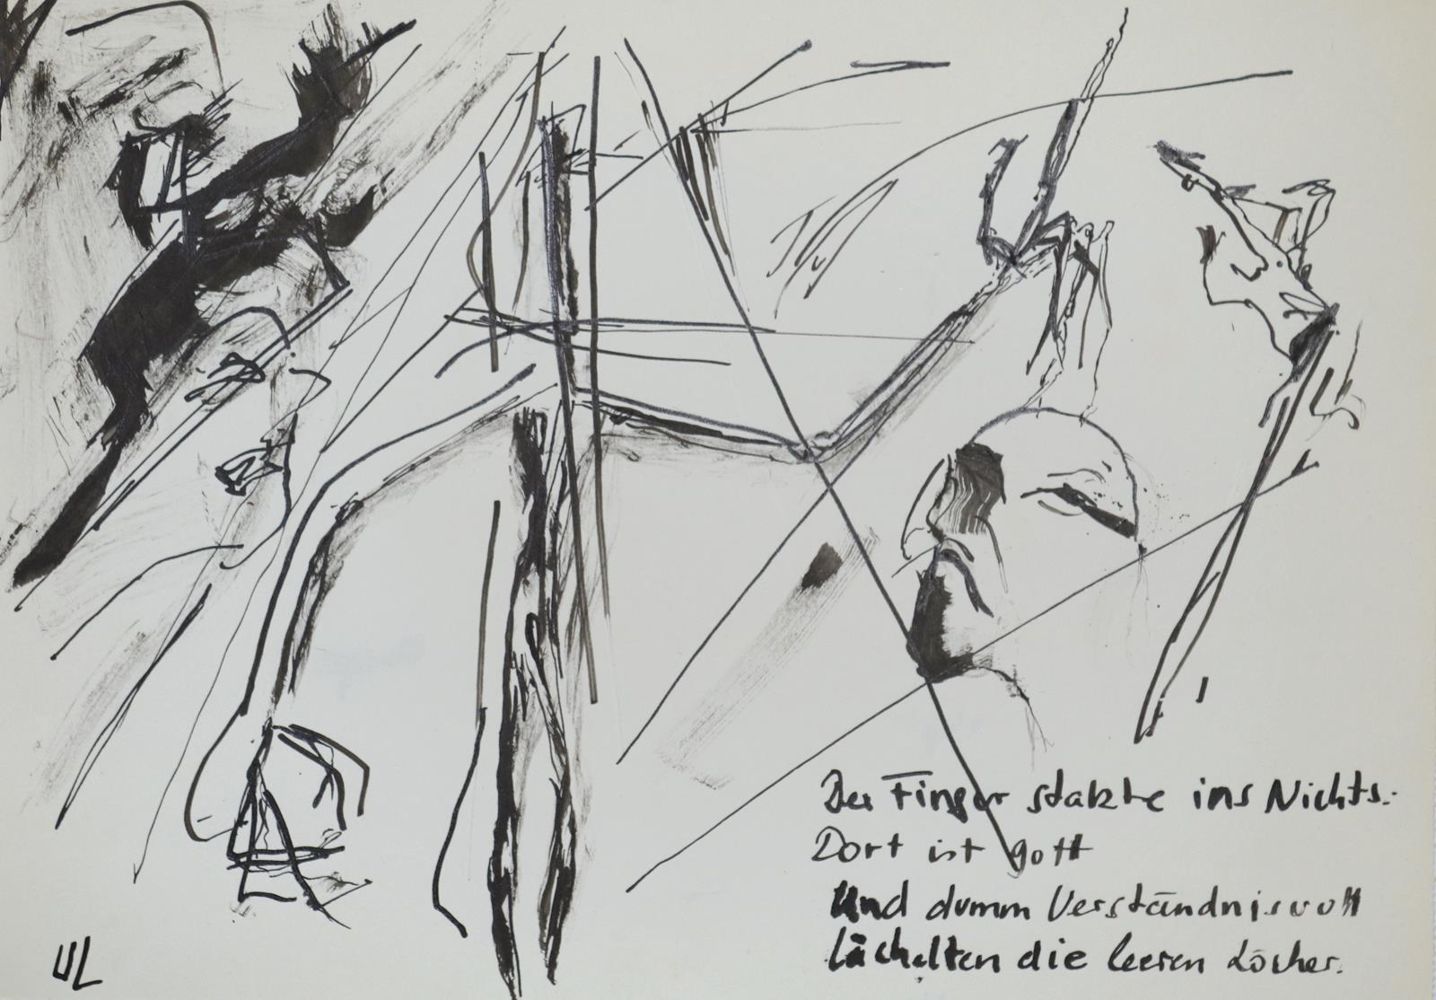 Der Finger stakte ins Nichts.
Dort ist Gott
Und dumm Verständnisvoll
lächelten die leeren Löcher.
UL